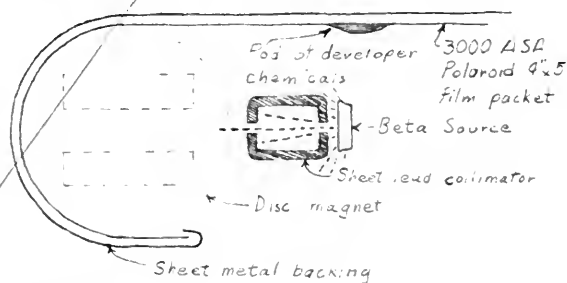 Pod of developer
chemicals
3000 ASA
Polaroid 4"x5
film packet
Beta Source
Sheet lead collimator
Disc magnet
Sheet metal backing